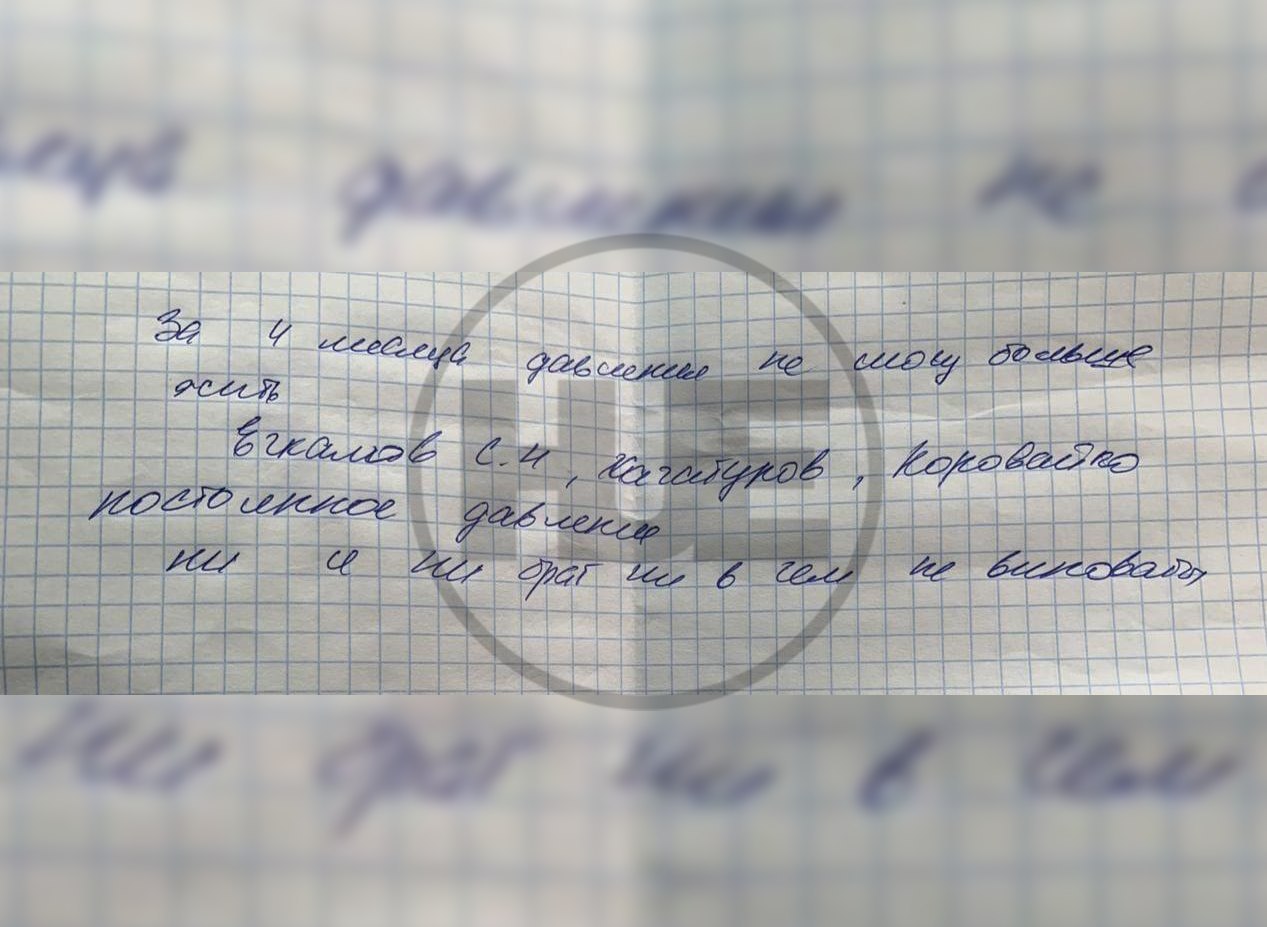 За 4 месяца давления не могу больше
жить
С.Н, Хачатуров, Коровайко
постоянное давление
ни я ни брат ни в чем не виноваты
НЕ